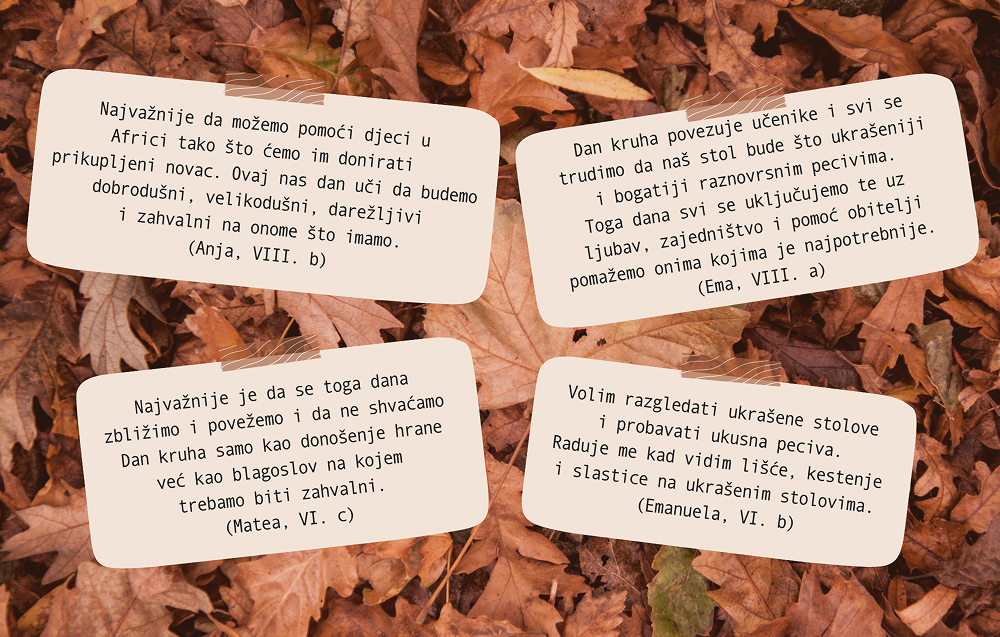 Najvažnije da možemo pomoći djeci u
Africi tako što ćemo im donirati
prikupljeni novac. Ovaj nas dan uči da budemo
dobrodušni, velikodušni, darežljivi
i zahvalni na onome što imamo.
(Anja, VIII. b)
Dan kruha povezuje učenike i svi se
trudimo da naš stol bude što ukrašeniji
i bogatiji raznovrsnim pecivima.
Toga dana svi se uključujemo te uz
ljubav, zajedništvo i pomoć obitelji
pomažemo onima kojima je najpotrebnije.
(Ema, VIII. a)
Najvažnije je da se toga dana
zbližimo i povežemo i da ne shvaćamo
Dan kruha samo kao donošenje hrane
već kao blagoslov na kojem
trebamo biti zahvalni.
(Matea, VI. c)
Volim razgledati ukrašene stolove
i probavati ukusna peciva.
Raduje me kad vidim lišće, kestenje
i slastice na ukrašenim stolovima.
(Emanuela, VI. b)